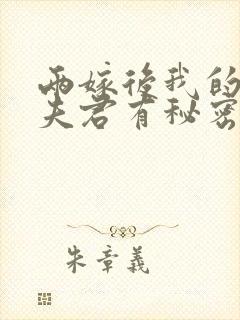 兩嫁後我的
夫君有秘密
朱章義